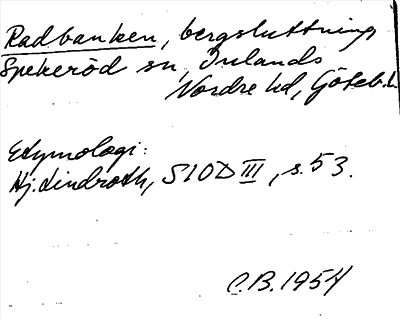 Radbanken, bergsluttning
Spekeröd sn, Inlands
Nordre hd, Göteb.l.
Etymologi:
Hj. Lindroth, SIOD III, s. 53.
C.B. 1954